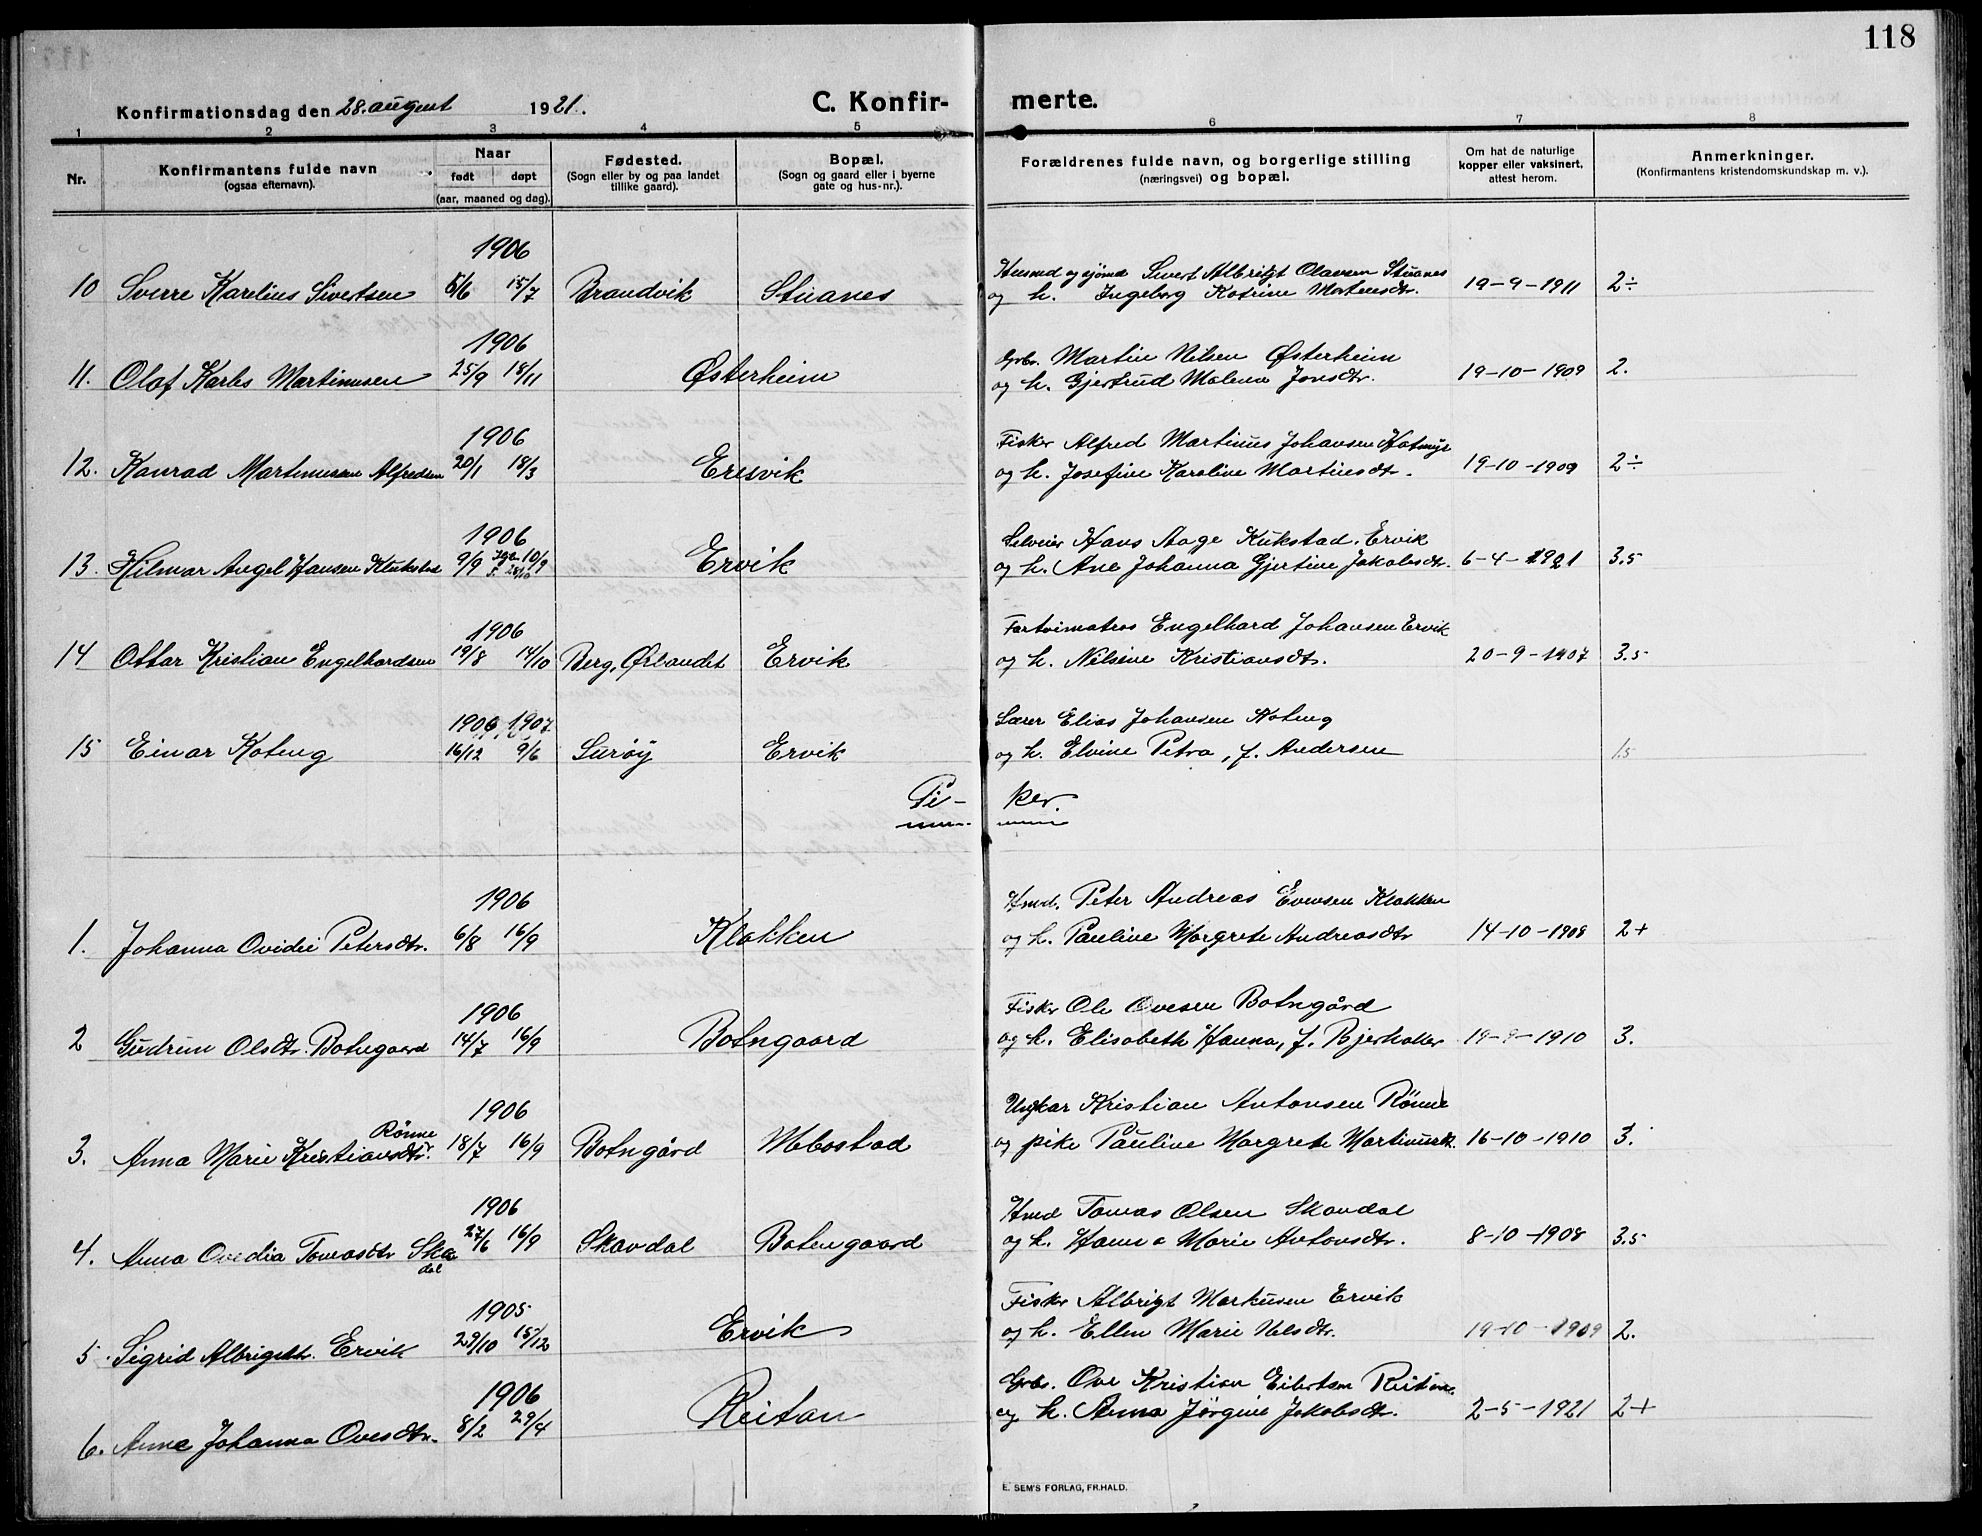 118
Konfirmationsdag den 28. august 1921.
C. Konfir- merte.
1 2 3 4 5 6 7 8
Nr.
Konfirmantens fulde navn
(ogsaa efternavn).
Naar
født døpt
(aar, maaned og dag).
Fødested.
(Sogn eller by og paa landet
tillike gaard).
Bopæl.
(Sogn og gaard eller i byerne
gate og hus-nr.).
Forældrenes fulde navn, og borgerlige stilling
(næringsvei) og bopæl.
Om hat de naturlige
kopper eller vaksinert,
attest herom.
Anmerkninger.
(Konfirmantens kristendomskundskap m. v.).
1906
Husmd og sjømd Sivert Albrigt Olavsen Stuanes
10 Sverre Karelius Sivertsen 8/6 15/7 Brandvik Stuanes
og h. Ingeborg Katrine Mortensdtr. 19-9-1911 2÷
1906
Grbr. Martin Nilsen Østerheim
11. Olaf Karles Martinusen 25/9 18/11 Østerheim
og h. Gjertrud Malena Jonsdtr. 19-10-1909 2.
1906
Fisker Alfred Martinus Johansen
12. Konrad Martinusen Alfredsen 20/1 18/3 Eresvik
og h. Josefine Karoline Martinsdtr. 19-10-1909 2÷
1906
Selveier Hans Aage Kukstad. Ervik
13. Hilmar Angel Hansen 9/9 10/9 Ervik
og h. Ane Johanna Gjertine Jakobsdtr. 6-4-1921 3.5
1906
Engelhard Johansen Ervik
14 Ottar Kristian Engelhardsen 19/8 14/10 Berg, Ørlandet Ervik
og h. Nilsine Kristiansdtr. 20-9-1907 3.5
1906 1907
Lærer Elias Johansen Koteng
15 Einar Koteng 16/12 9/6 Surøy Ervik
og h. Elvine Petra, f. Andersen 1.5
Pi- ker.
1906
Hmd. Peter Andreas Evensen Klakken
1. Johanna Ovidie Petersdtr. 6/8 16/9 Klakken
og h. Pauline Margrete Andreasdtr 14-10-1908 2+
1906
Fisker Ole Ovesen Botngård
2 Gudrun Olsdtr. Botngaard 14/7 16/9 Botngaard
og h. Elisabeth Hanna, f. Bjerkaker 19-9-1910 3.
1906
Ungkar Kristian Antonsen Rönne
3. Anna Marie Kristiansdtr. Rönne 18/7 16/9 Botngård Mebostad
og pike Pauline Margrete Martinusdt. 16-10-1910 3.
1906
Hmd Tomas Olsen Skavdal
4. Anna Ovedia Tomasdtr Skadal 27/6 16/9 Skavdal Botengaard
og h. Hanna Marie Antonsdtr. 8-10-1908 3.5
1905
Fisker Albrigt Markusen Ervik
5. Sigrid Albrigtdtr. Ervik 29/10 15/12 Ervik
og h. Ellen Marie Nelsdtr. 19-10-1909 2.
1906
Grbr. Ove Kristian Eilertsen Reitan.
6. Anne Johanna Ovesdtr. 8/2 29/4 Reitan
og h. Anna Jørgine Jakobsdtr. 2-5-1921 2+
E. SEM'S FORLAG, FR.HALD.